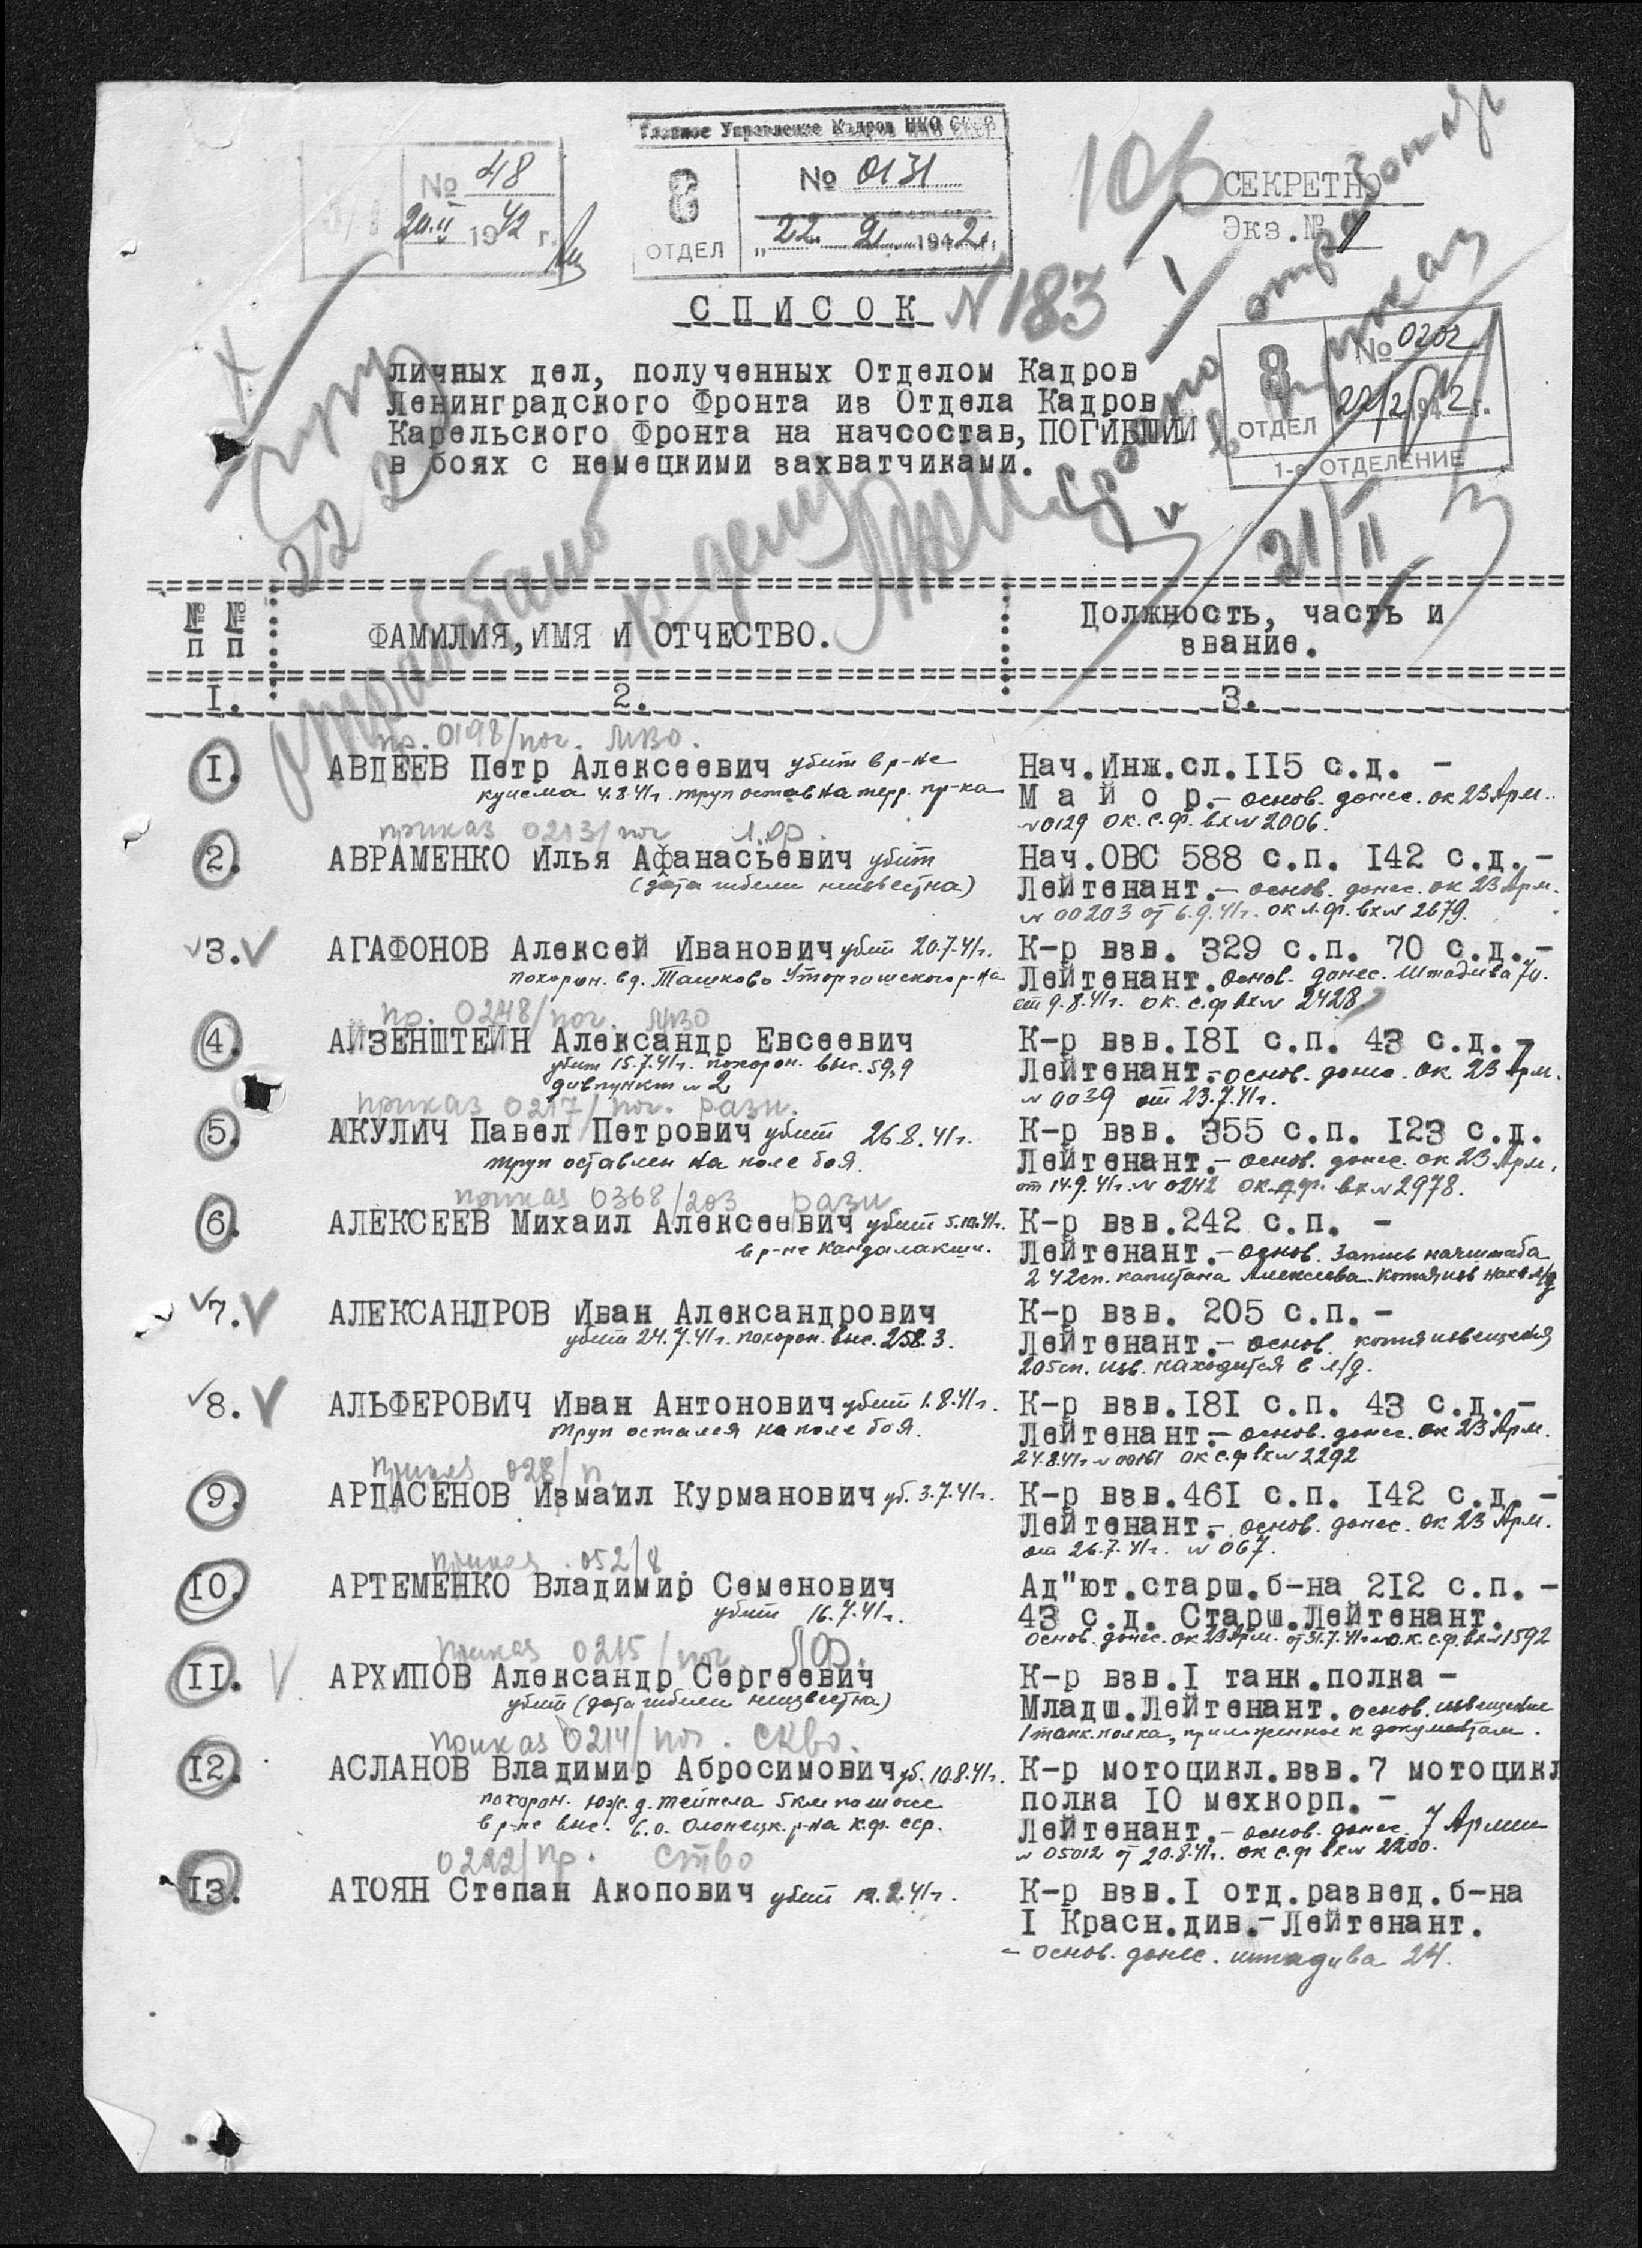 Главное Управление Кадров НКО СССР
№ 48
20.II 1942 г.
8 ОТДЕЛ
№ 0131
"22" 2 1942 г.
106
СЕКРЕТНО
Экз.№ 1
СПИСОК № 183
личных дел, полученных Отделом Кадров
Ленинградского Фронта из Отдела Кадров
Карельского Фронта на начсостав, ПОГИБШИЙ
в боях с немецкими захватчиками.
8 ОТДЕЛ
№ 0202
1-е ОТДЕЛЕНИЕ
Срочно отработать
в приказ
21/II
отработано
к делу
22 2
№ № п п
ФАМИЛИЯ, ИМЯ И ОТЧЕСТВО.
Должность, часть и звание.
I. 2. 3.
пр. 0198/пог. МВО.
I. АВДЕЕВ Петр Алексеевич убит в р-не Нач.Инж.сл.II5 с.д. -
4.8.41г. труп остав на терр. пр-ка Майор.- основ. донес. ок 23 Арм.
№ 0129 ок. с.ф. вх № 2006.
приказ 0213/пог Л.Ф.
2. АВРАМЕНКО Илья Афанасьевич убит Нач.ОВС 588 с.п. I42 с.д.-
(дата гибели неизвестна) Лейтенант.- основ. донес. ок 23 Арм.
№ 00203 от 6.9.41г. ок л.ф. вх № 2679.
3. АГАФОНОВ Алексей Иванович убит 20.7.41г. К-р взв. 329 с.п. 70 с.д.-
похорон. в д. Ташково Уторгошского р-на Лейтенант. основ. донес. Штадива 70.
от 9.8.41г. ок. с.ф вх № 2428
пр. 0248/пог. МВО
4. АЙЗЕНШТЕЙН Александр Евсеевич К-р взв.I8I с.п. 43 с.д.-
убит 15.7.41г. похорон. выс. 59,9 Лейтенант.- основ. донес. ок 23 Арм.
№ 2 № 0039 от 23.7.41г.
приказ 0217/пог. разн.
5. АКУЛИЧ Павел Петрович убит 26.8.41г. К-р взв. 355 с.п. I23 с.д.
труп оставлен на поле боя. Лейтенант.- основ. донес. ок 23 Арм.
от 14.9.41г. № 0242 ок.л.ф. вх № 2978.
приказ 0368/203 разн
6. АЛЕКСЕЕВ Михаил Алексеевич убит 5.10.41г. К-р взв.242 с.п. -
в р-не Кандалакши. Лейтенант.- основ. запись начштаба
242сп. капитана Алексеева. Копия изв нах в л/д
7. АЛЕКСАНДРОВ Иван Александрович К-р взв. 205 с.п.-
убит 24.7.41г. похорон. выс. 258.3. Лейтенант.- основ. копия извещения
205сп. изв. находится в л/д.
8. АЛЬФЕРОВИЧ Иван Антонович убит 1.8.41г. К-р взв.I8I с.п. 43 с.д.-
труп остался на поле боя. Лейтенант.- основ. донес. ок 23 Арм.
24.8.41г № 00161 ок с.ф вх № 2292
приказ 028/п
9. АРДАСЕНОВ Измаил Курманович уб. 3.7.41г. К-р взв.46I с.п. I42 с.д. -
Лейтенант.- основ. донес. ок 23 Арм.
от 26.7.41г. № 067.
приказ 052/8
I0. АРТЕМЕНКО Владимир Семенович Ад"ют.старш.б-на 2I2 с.п. -
убит 16.7.41г. 43 с.д. Старш.Лейтенант.
основ. донес. ок 23 Арм. от 31.7.41г. о.к. с.ф. вх № 1592
приказ 0215/пог ЛФ.
II. АРХИПОВ Александр Сергеевич К-р взв.I танк.полка -
убит (дата гибели неизвестна) Младш.Лейтенант. основ. извещение
1 танк.полка, приложенное к документам.
приказ 0214/пог. СКВО.
I2. АСЛАНОВ Владимир Абросимович уб. 10.8.41г. К-р мотоцикл.взв.7 мотоцикл
похорон. юж. д. 5км полка I0 мехкорп. -
в р-не выс. 6.0. Олонецк. р-на К.Ф. ССР. Лейтенант.- основ. донес. 7 Армии
№ 05012 от 20.8.41г. ок с.ф вх № 2200.
0222/пр. СТВО
I3. АТОЯН Степан Акопович убит К-р взв.I отд.развед.б-на
I Красн.див.-Лейтенант.
- основ. донес. штадива 24.